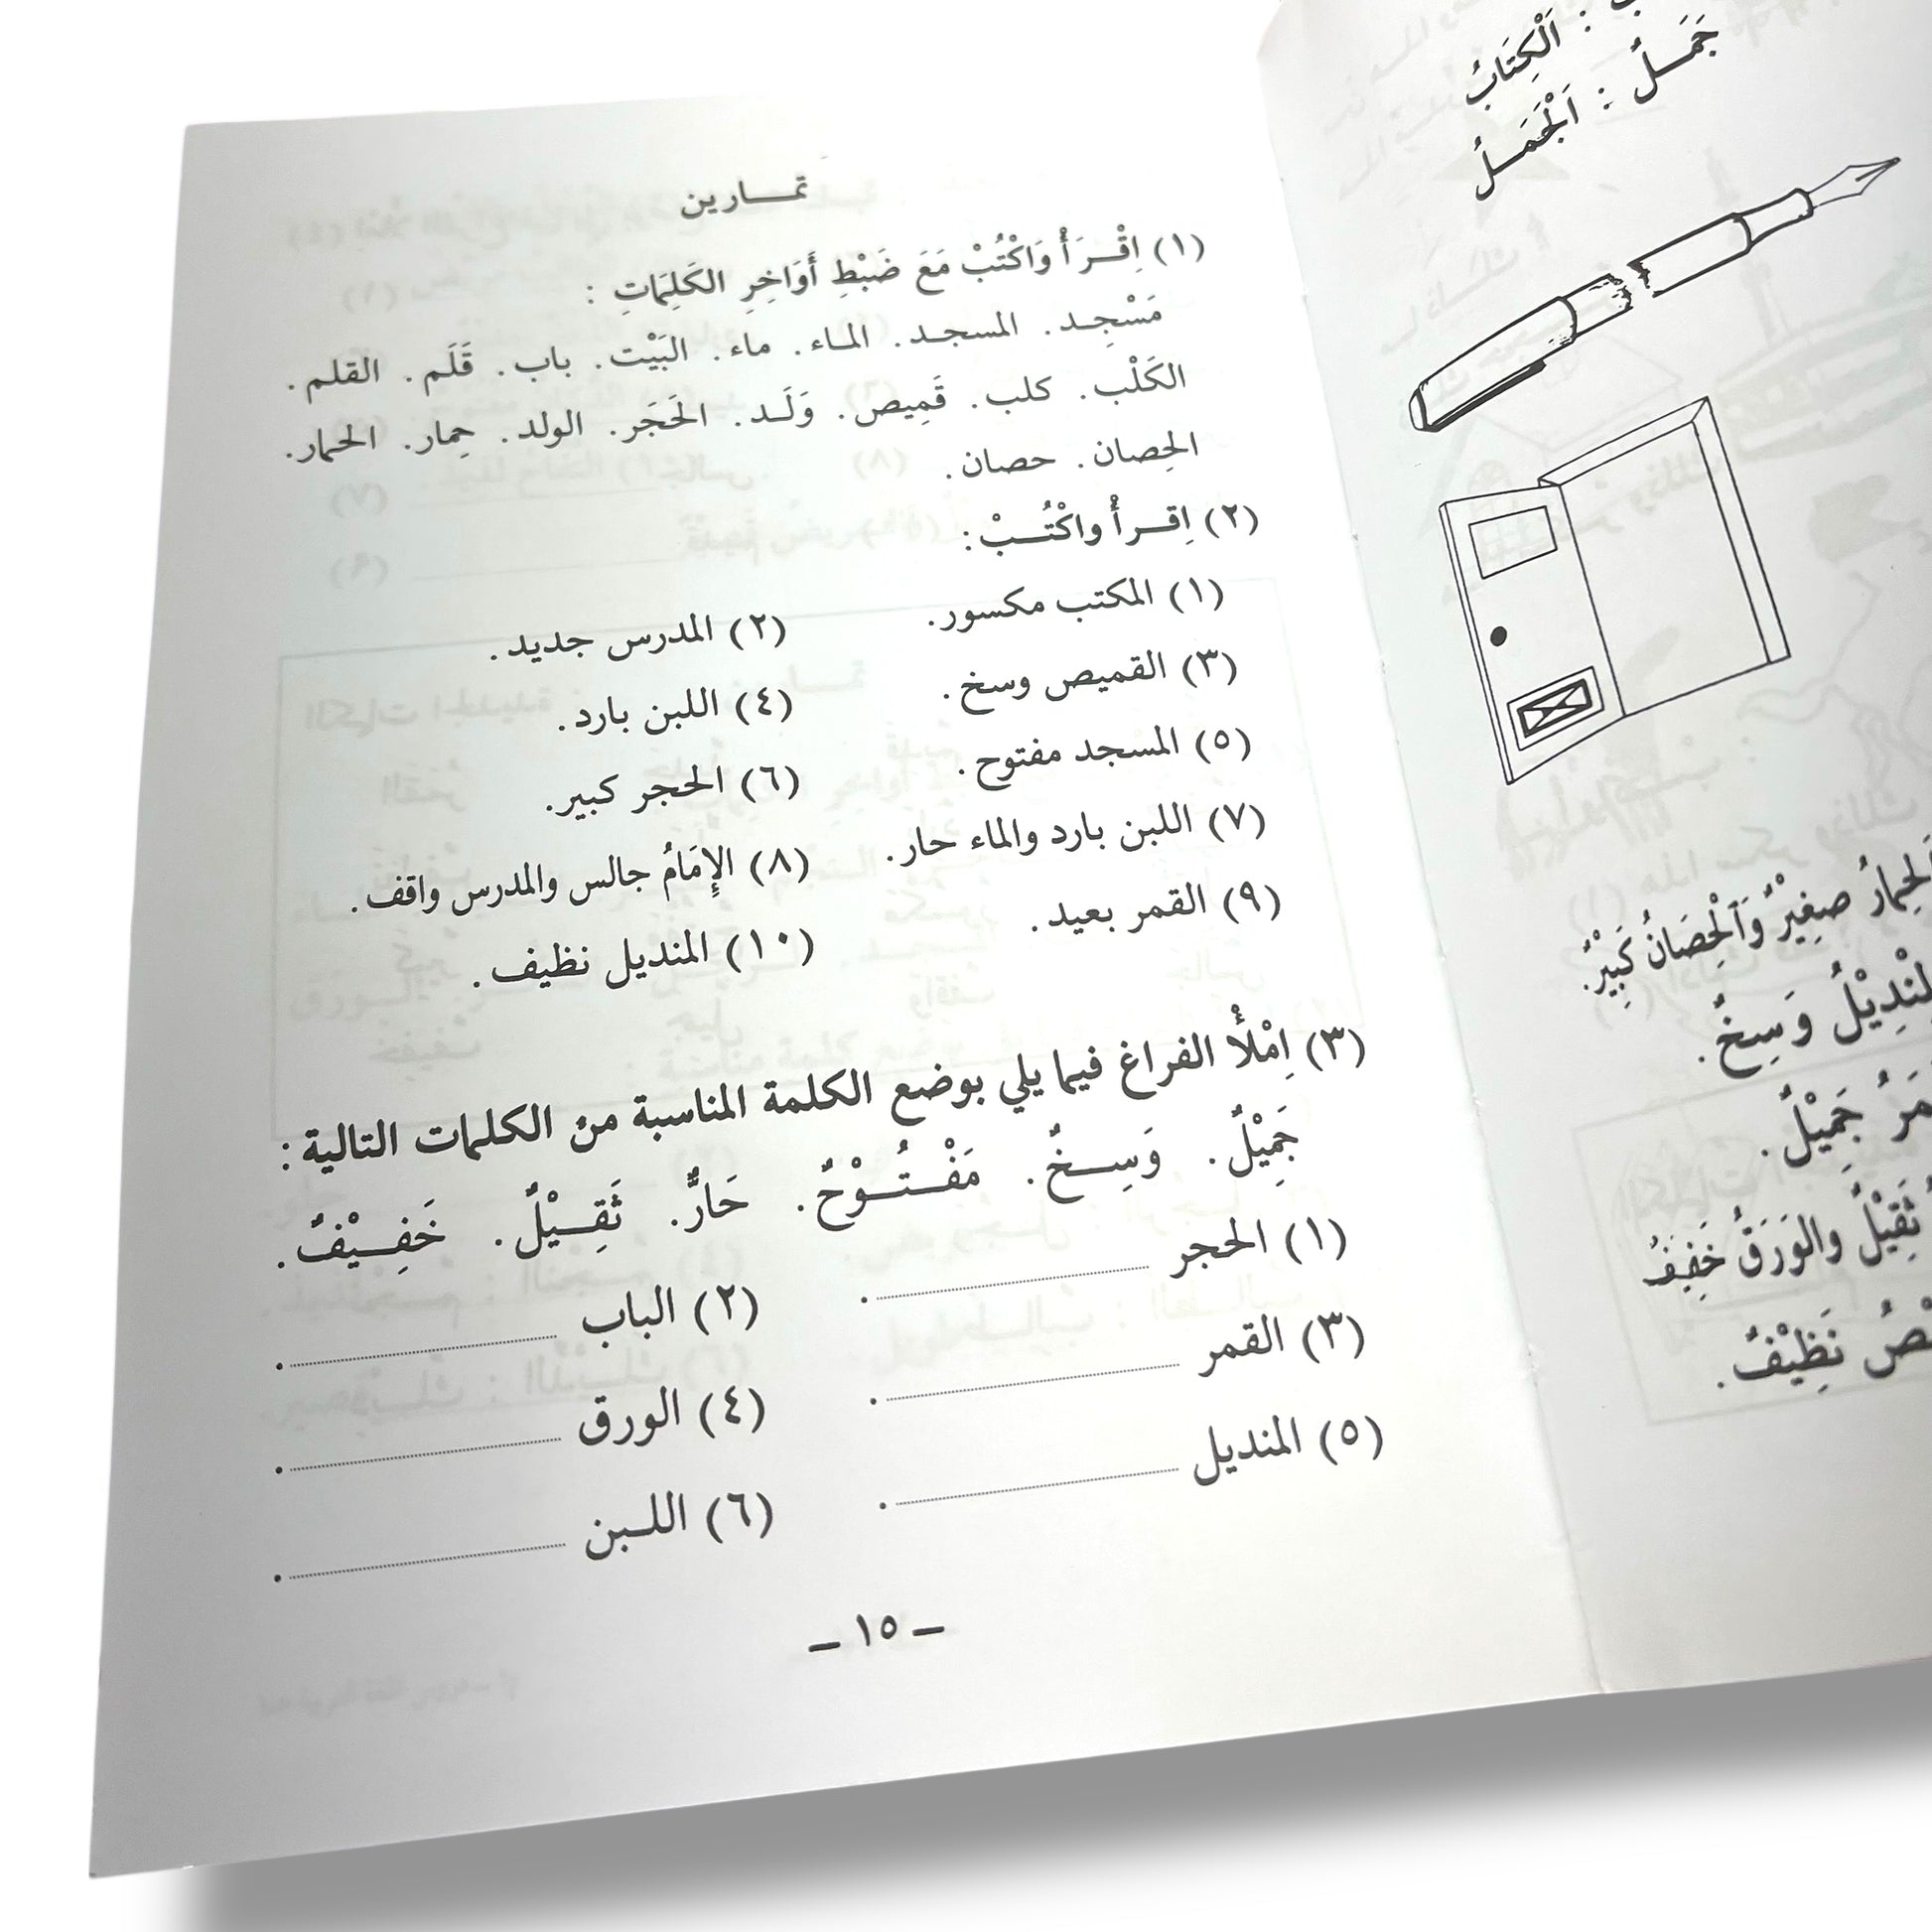 تمـارين
(١) اِقْـرَأْ وَاكْتُبْ مَعَ ضَبْطِ أَوَاخِرِ الكَلِمَاتِ :
مَسْجِـد. المسجـد. المـاء. ماء. البَيْت. باب. قَلَم. القلم.
الكَلْب. كلب. قَمِيص. وَلَـد. الحَجَر. الولد. حِمار. الحمار.
الحِصان. حصان.
(٢) اِقـرأْ واكْتُـبْ:
(١) المكتب مكسور. (٢) المدرس جديد.
(٣) القميص وسخ. (٤) اللبن بارد.
(٥) المسجد مفتوح. (٦) الحجر كبير.
(٧) اللبن بارد والماء حار. (٨) الإِمَامُ جالس والمدرس واقف.
(٩) القمر بعيد. (١٠) المنديل نظيف.
(٣) اِمْلأْ الفراغ فيما يلي بوضع الكلمة المناسبة من الكلمات التالية :
جَمِيْلٌ. وَسِـخٌ. مَفْـتُـوْحٌ. حَارٌّ. ثَقِـيْلٌ. خَفِـيْفٌ.
(١) الحجر ............ . (٢) الباب ............ .
(٣) القمر ............ . (٤) الورق ............ .
(٥) المنديل ............ . (٦) اللـبن ............ .
ـ ١٥ ـ
: اَلْكِتَابُ
جَمَـلٌ : اَلْجَمَـلُ
صغِيْرٌ وَاَلْحِصَانُ كَبِيْرٌ.
وَسِخٌ.
جَمِيْلٌ.
ثَقِيْلٌ والوَرَقُ خَفِيفٌ
نَظِيْفٌ.